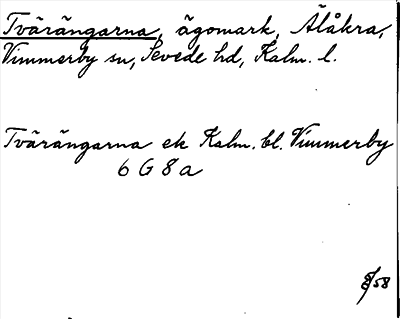 Tvärängarna, ägomark, Älåkra,
Vimmerby sn, Sevede hd, Kalm. l.
Tvärängarna ek Kalm. bl. Vimmerby
6 G 8 a
58